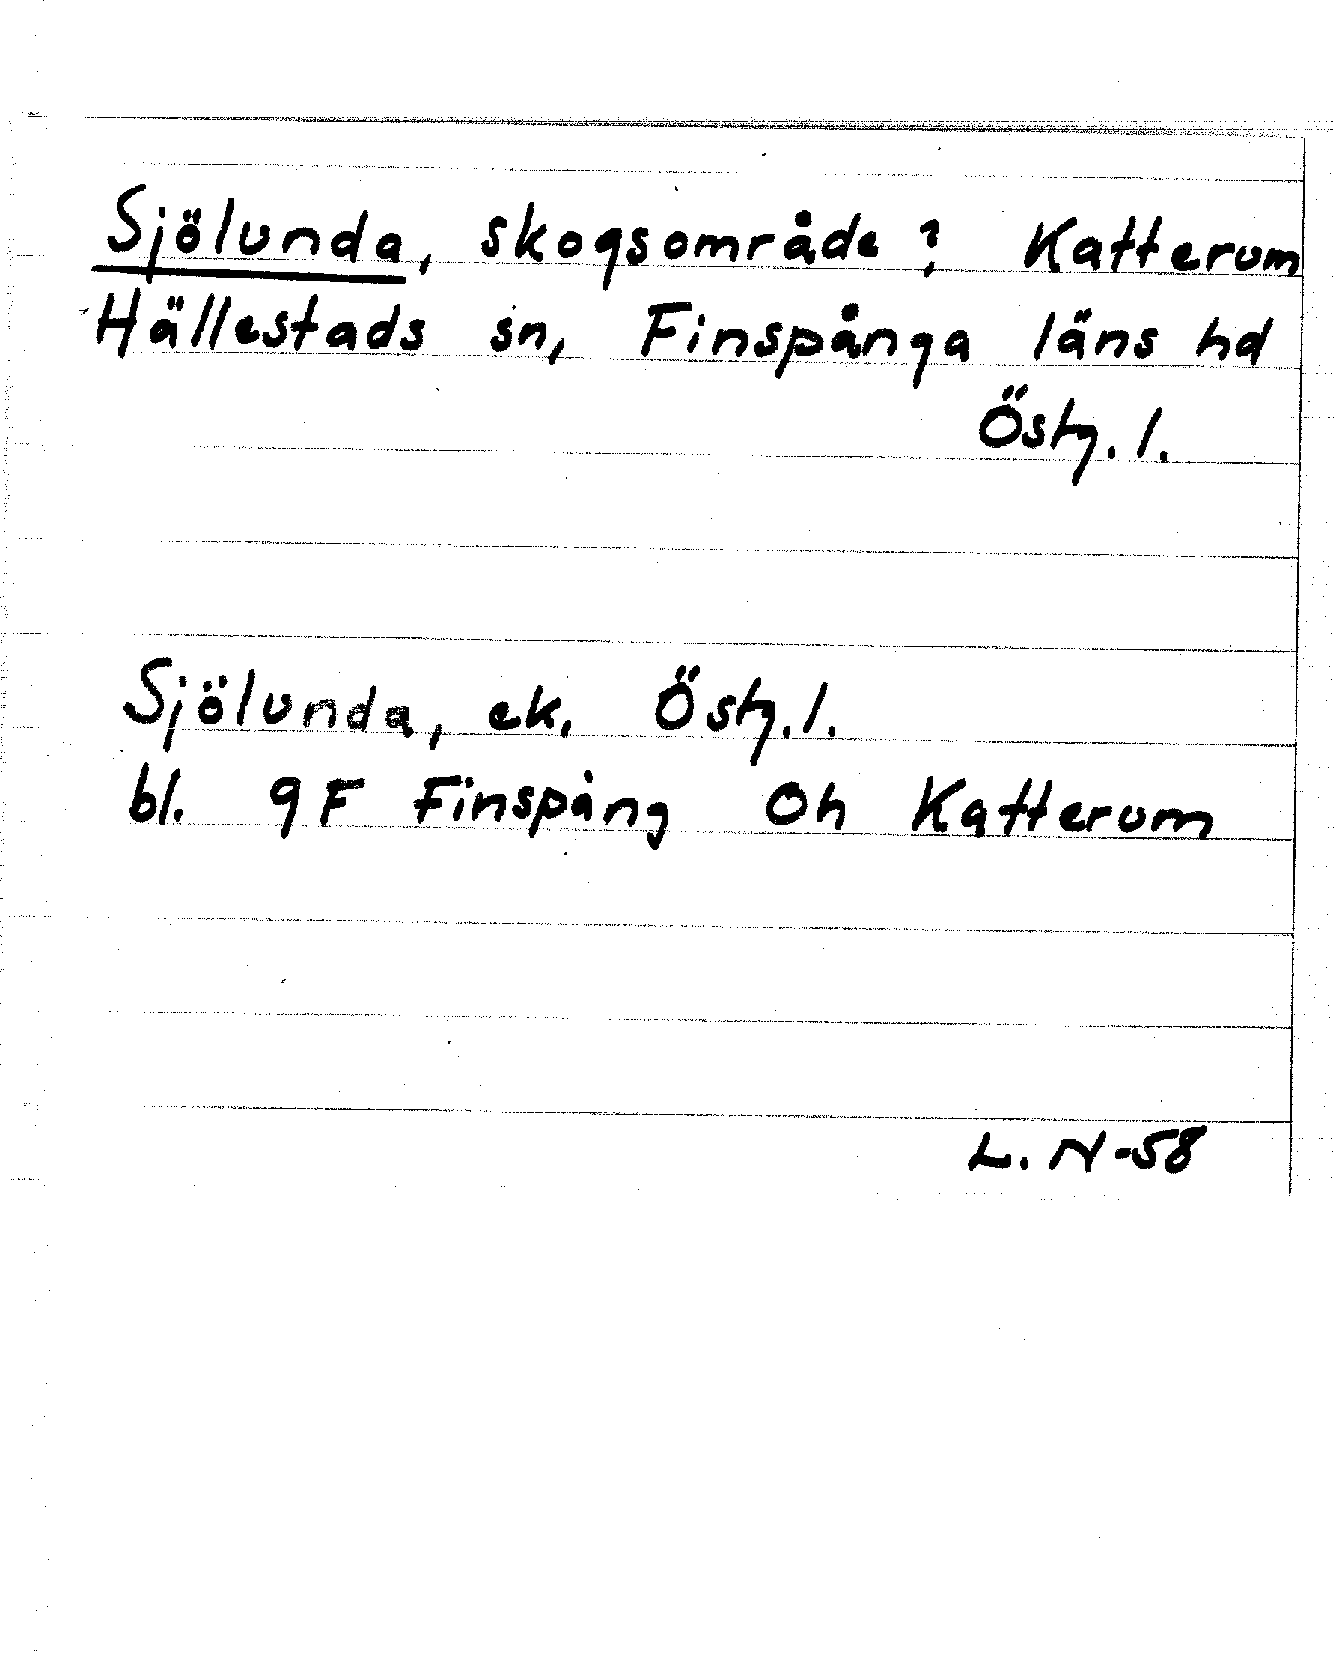 Sjölunda, skogsområde? Katterum
Hällestads sn, Finspånga läns hd
Östg. l.
Sjölunda, ek. Östg. l.
bl. 9F Finspång Oh Katterum
L. N-58